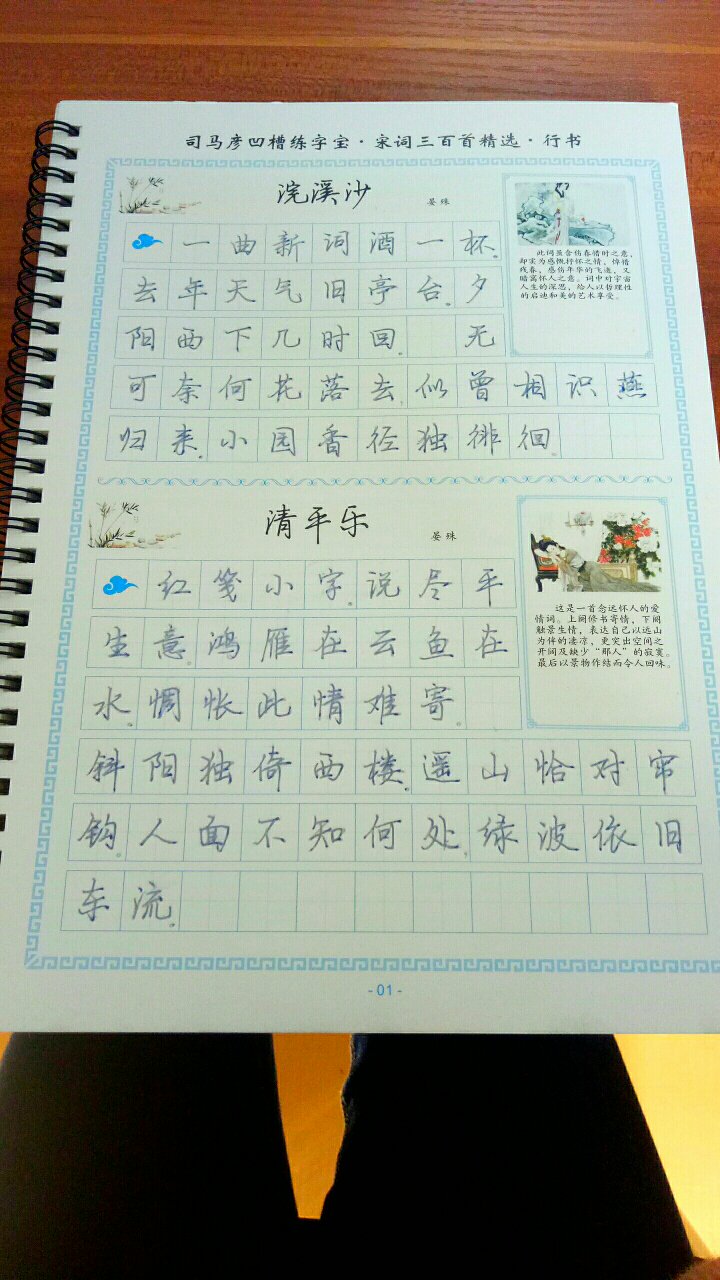 司马彦凹槽练字宝·宋词三百首精选·行书
浣溪沙
晏殊
一曲新词酒一杯
去年天气旧亭台。夕
阳西下几时回。 无
可奈何花落去,似曾相识燕
归来。小园香径独徘徊
此词虽含伤春惜时之意,
却实为感慨抒怀之情,悼惜
残春,感伤年华的飞逝,又
暗寓怀人之意。词中对宇宙
人生的深思,给人以哲理性
的启迪和美的艺术享受。
清平乐
晏殊
红笺小字。说尽平
生意。鸿雁在云鱼在
水。惆怅此情难寄
斜阳独倚西楼。遥山恰对帘
钩。人面不知何处,绿波依旧
东流。
这是一首念远怀人的爱
情词。上阕修书寄情,下阕
触景生情,表达自己以远山
为伴的凄凉,更突出空间之
开阔及缺少“那人”的寂寞。
最后以景物作结而令人回味。
- 01 -